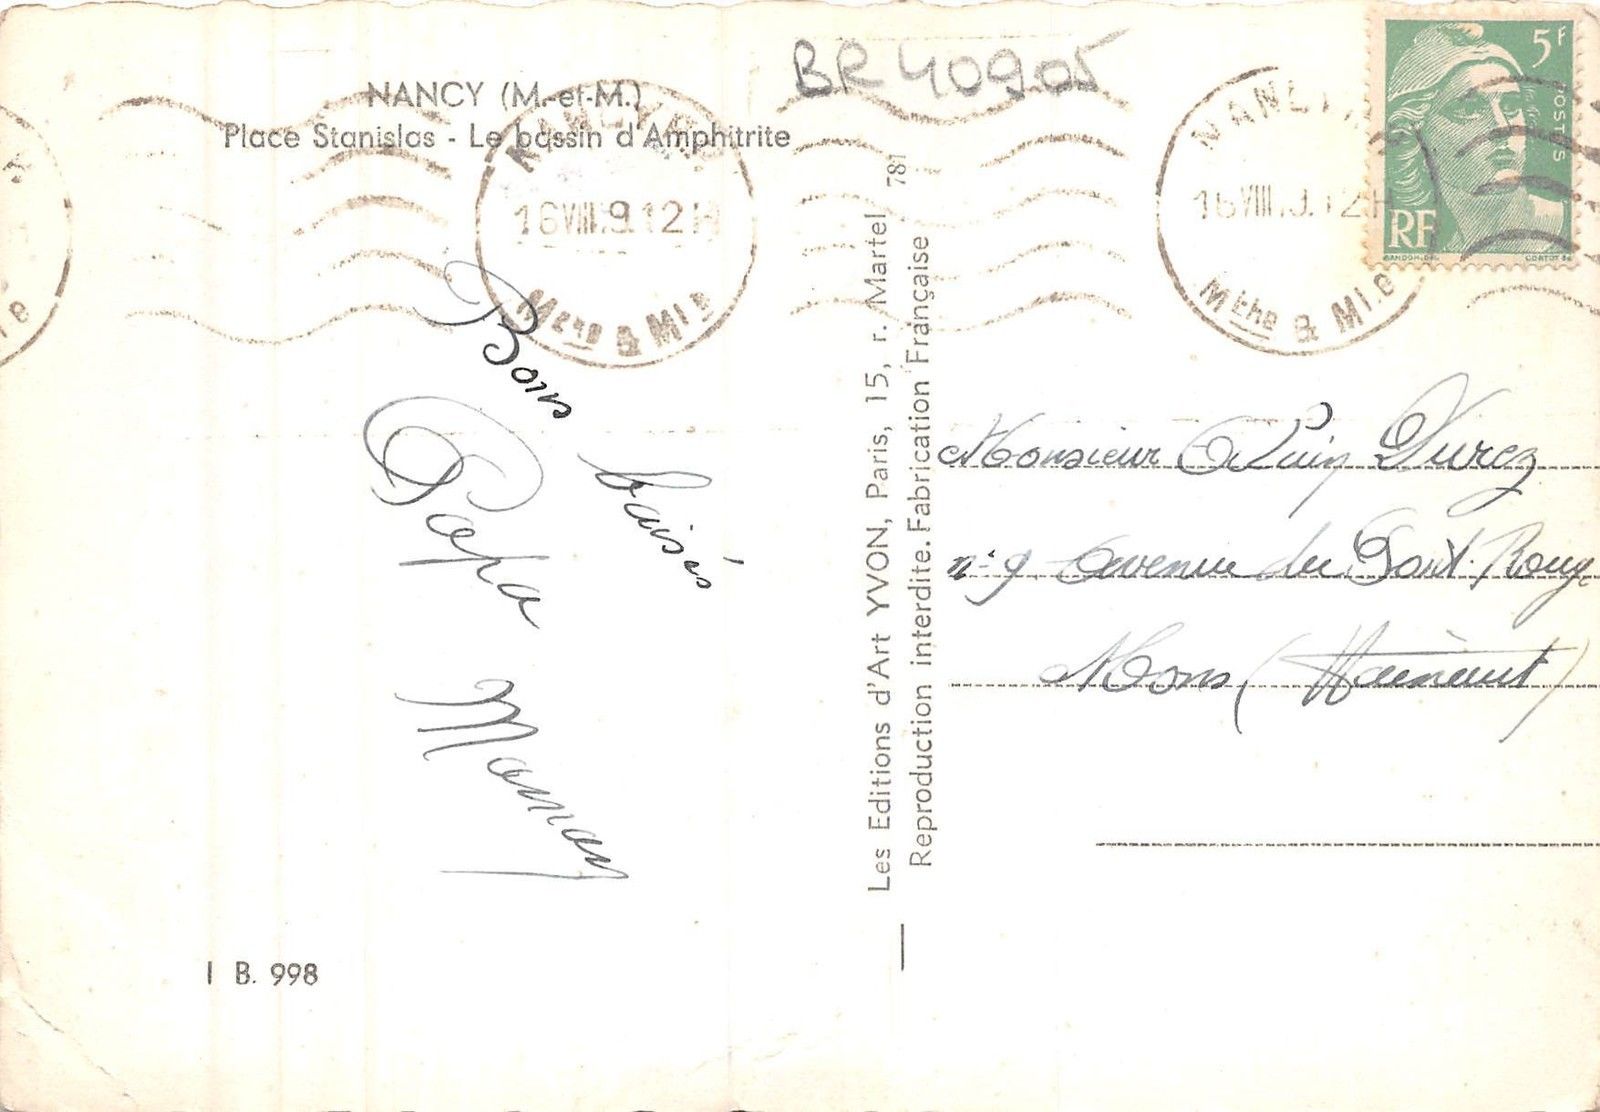 BR 40905
NANCY (M.-et-M.)
Place Stanislas - Le bassin d'Amphitrite
16 VIII.9.12H
Mthe & Mlle
NANCY
Mthe & Mlle
5F
POSTES
RF
GANDON.DEL.
CORTOT SC
Bons
baisers
Papa
Maman
781
Les Editions d'Art YVON, Paris, 15, r. Martel
Reproduction interdite. Fabrication Française
Monsieur Alain Durez
n° 9 Avenue du Pont Rouge
Mons (Hainaut)
I B. 998